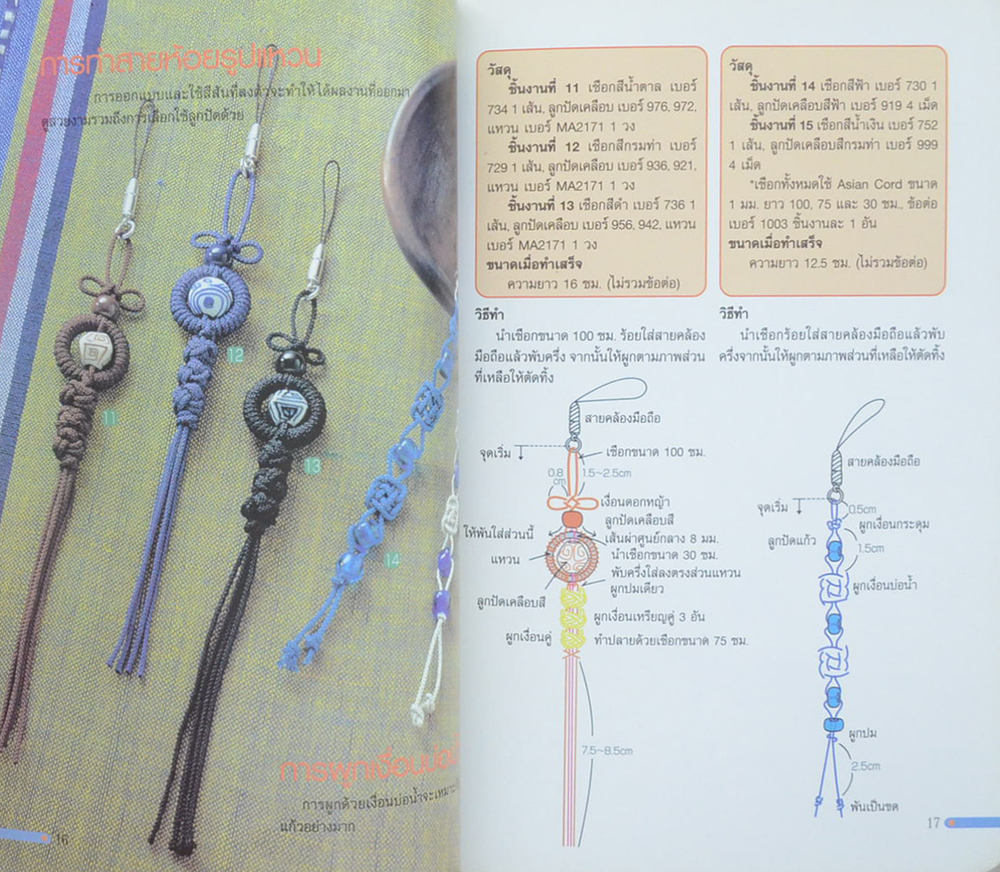 การทำสายห้อยรูปแหวน
การออกแบบและใช้สีสันที่ลงตัวจะทำให้ได้ผลงานที่ออกมา
ดูสวยงามรวมถึงการเลือกใช้ลูกปัดด้วย
11
12
13
14
การผูกเงื่อนบ่อ
การผูกด้วยเงื่อนบ่อน้ำจะเหมาะ
แก้วอย่างมาก
16
วัสดุ
ชิ้นงานที่ 11 เชือกสีน้ำตาล เบอร์
734 1 เส้น, ลูกปัดเคลือบ เบอร์ 976, 972,
แหวน เบอร์ MA2171 1 วง
ชิ้นงานที่ 12 เชือกสีกรมท่า เบอร์
729 1 เส้น, ลูกปัดเคลือบ เบอร์ 936, 921,
แหวน เบอร์ MA2171 1 วง
ชิ้นงานที่ 13 เชือกสีดำ เบอร์ 736 1
เส้น, ลูกปัดเคลือบ เบอร์ 956, 942, แหวน
เบอร์ MA2171 1 วง
ขนาดเมื่อทำเสร็จ
ความยาว 16 ซม. (ไม่รวมข้อต่อ)
วิธีทำ
นำเชือกขนาด 100 ซม. ร้อยใส่สายคล้อง
มือถือแล้วพับครึ่ง จากนั้นให้ผูกตามภาพส่วน
ที่เหลือให้ตัดทิ้ง
สายคล้องมือถือ
จุดเริ่ม
เชือกขนาด 100 ซม.
0.8
cm
1.5~2.5cm
เงื่อนดอกหญ้า
ลูกปัดเคลือบสี
ให้พันใส่ส่วนนี้
เส้นผ่าศูนย์กลาง 8 มม.
แหวน
นำเชือกขนาด 30 ซม.
พับครึ่งใส่ลงตรงส่วนแหวน
ผูกปมเดียว
ลูกปัดเคลือบสี
ผูกเงื่อนเหรียญคู่ 3 อัน
ผูกเงื่อนคู่
ทำปลายด้วยเชือกขนาด 75 ซม.
7.5~8.5cm
วัสดุ
ชิ้นงานที่ 14 เชือกสีฟ้า เบอร์ 730 1
เส้น, ลูกปัดเคลือบสีฟ้า เบอร์ 919 4 เม็ด
ชิ้นงานที่ 15 เชือกสีน้ำเงิน เบอร์ 752
1 เส้น, ลูกปัดเคลือบสีกรมท่า เบอร์ 999
4 เม็ด
*เชือกทั้งหมดใช้ Asian Cord ขนาด
1 มม. ยาว 100, 75 และ 30 ซม., ข้อต่อ
เบอร์ 1003 ชิ้นงานละ 1 อัน
ขนาดเมื่อทำเสร็จ
ความยาว 12.5 ซม. (ไม่รวมข้อต่อ)
วิธีทำ
นำเชือกร้อยใส่สายคล้องมือถือแล้วพับ
ครึ่งจากนั้นให้ผูกตามภาพส่วนที่เหลือให้ตัดทิ้ง
สายคล้องมือถือ
จุดเริ่ม
0.5cm
ผูกเงื่อนกระดุม
ลูกปัดแก้ว
1.5cm
ผูกเงื่อนบ่อน้ำ
ผูกปม
2.5cm
พันเป็นขด
17